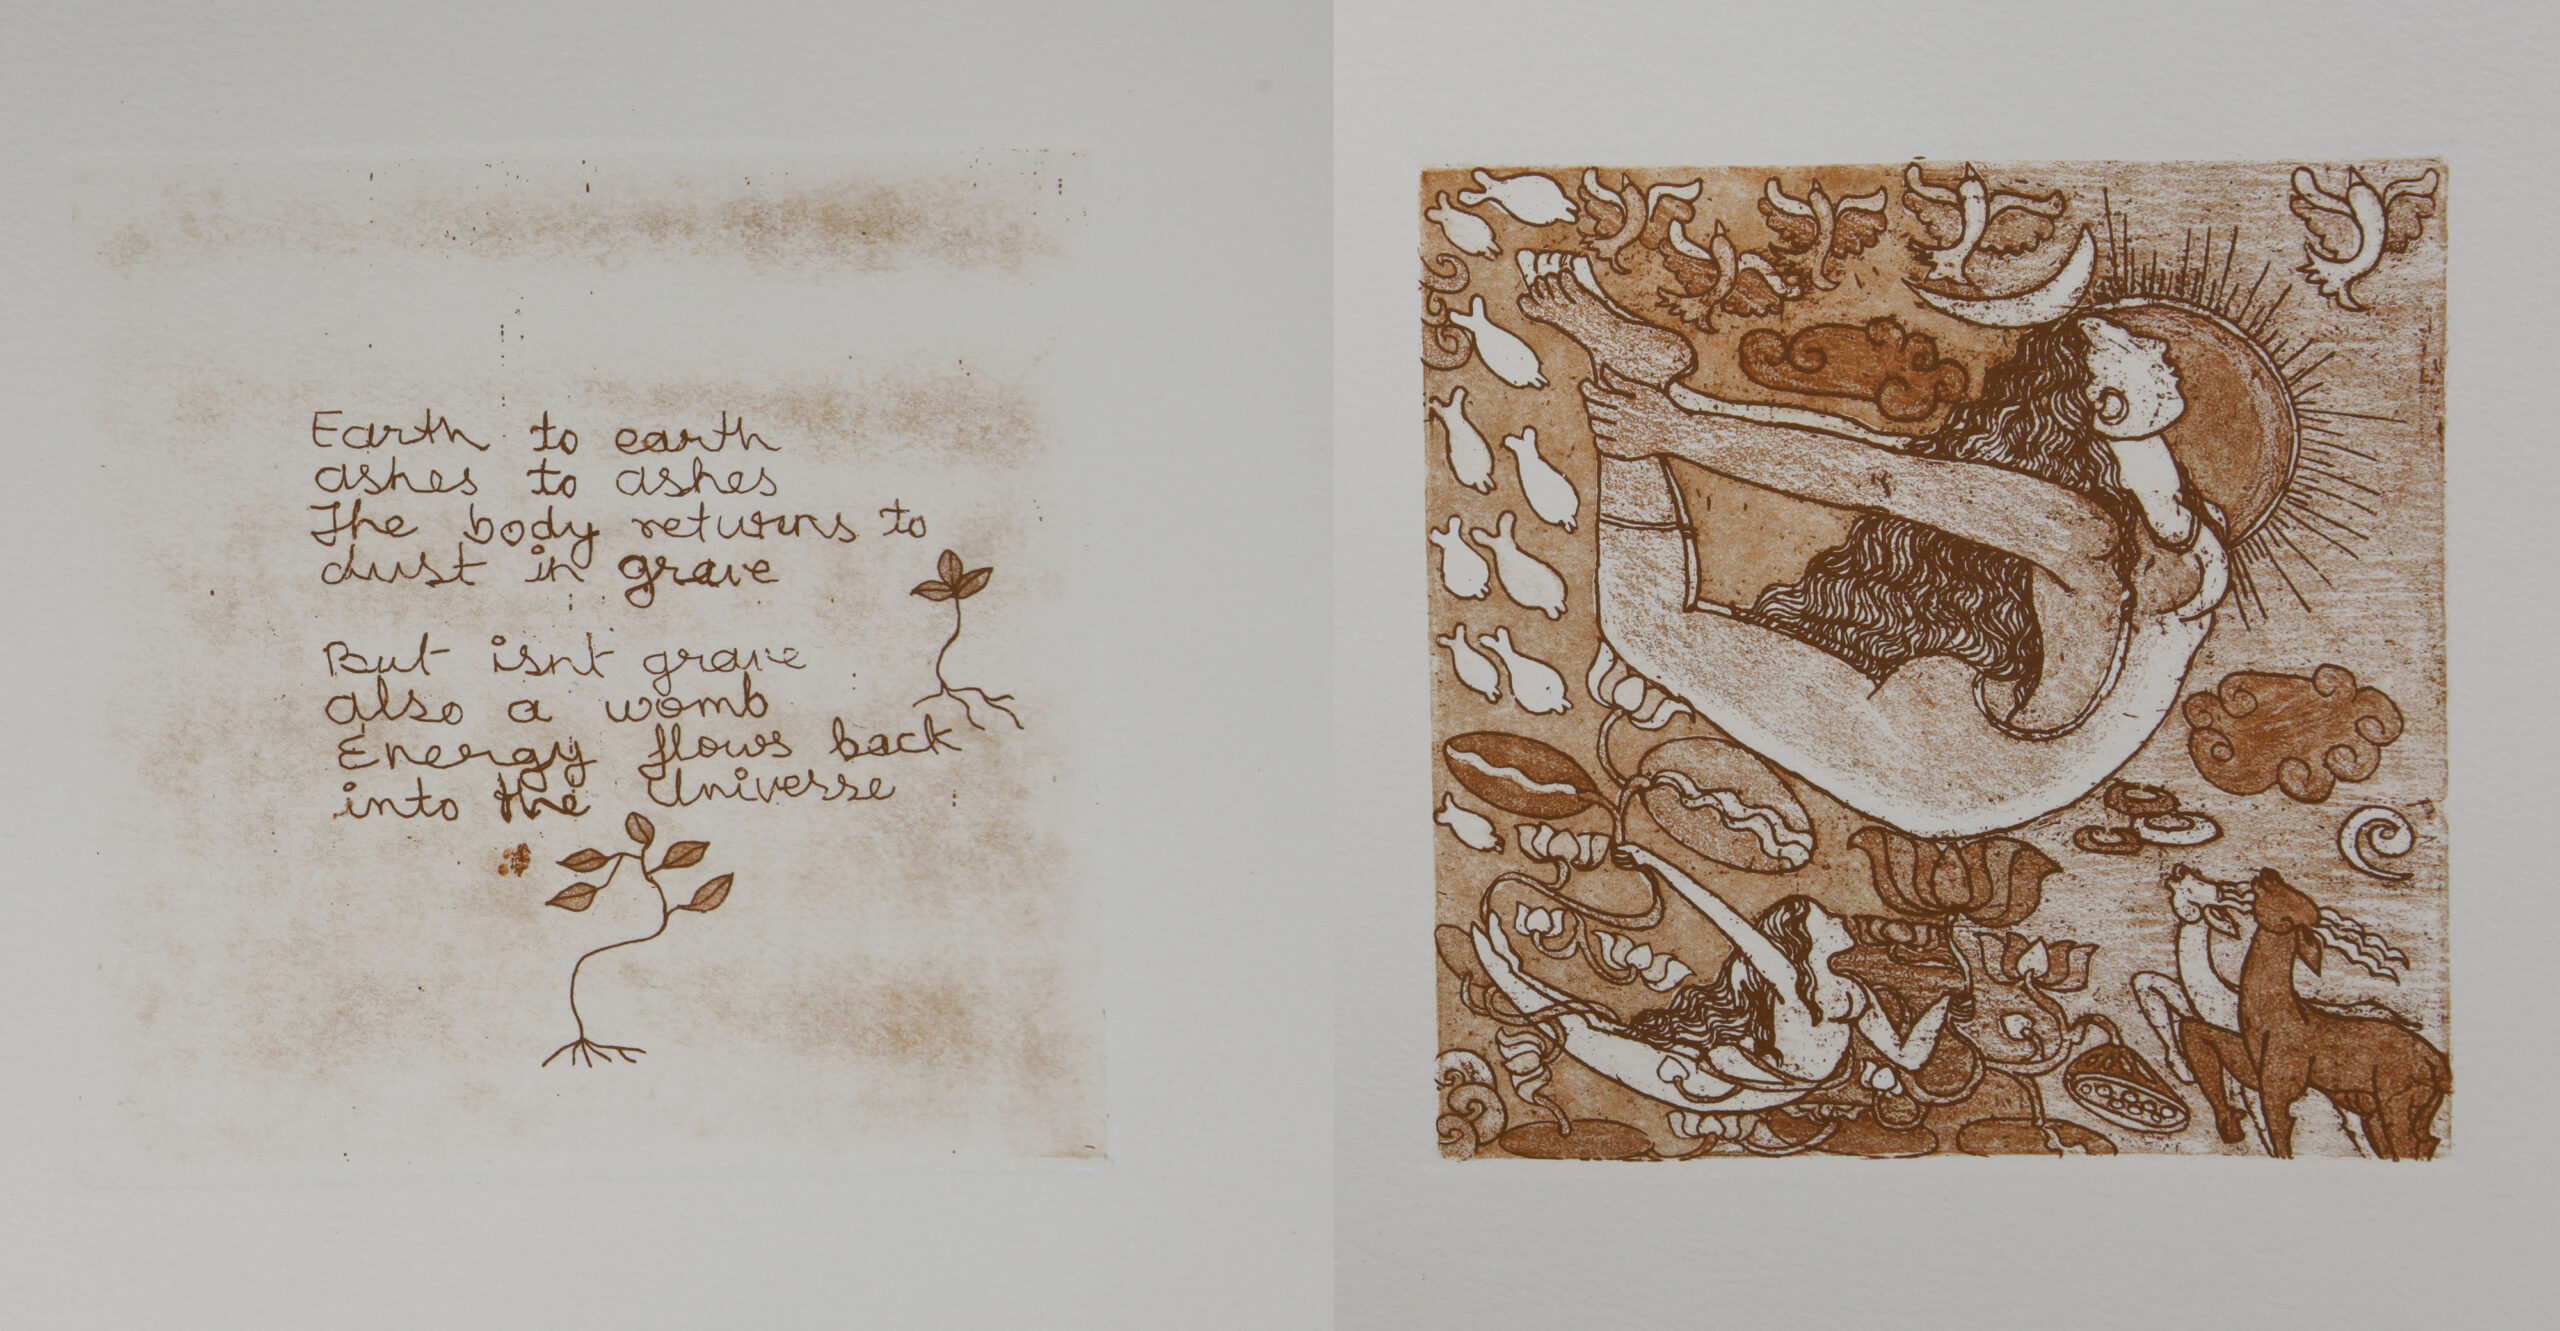 Earth to earth
ashes to ashes
The body returns to
dust in grave
But isnt grave
also a womb
Energy flows back
into the Universe